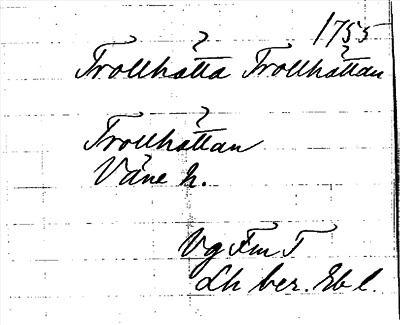 1755
Trollhätta Trollhättan
Trollhättan
Väne h.
Vg Fm T
Lh ber. Eb l.